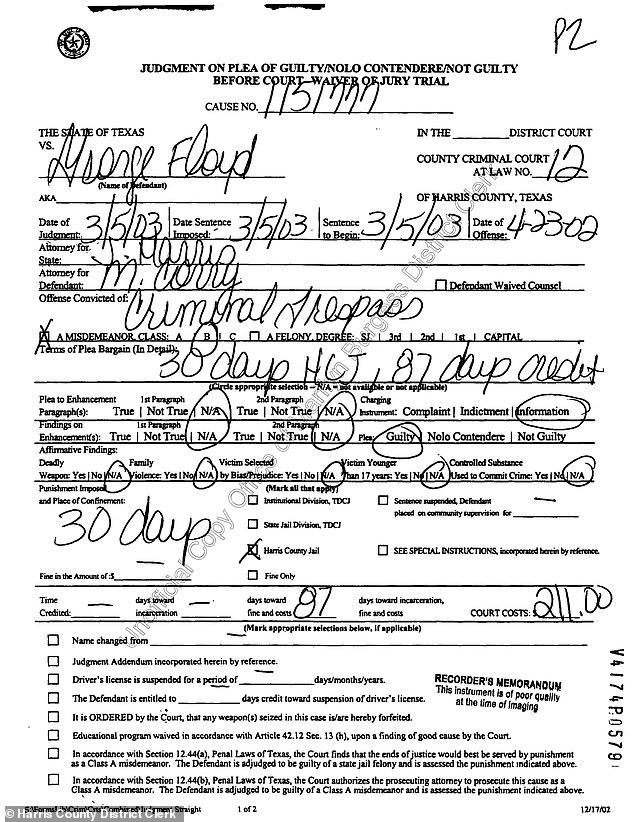 P2
JUDGMENT ON PLEA OF GUILTY/NOLO CONTENDERE/NOT GUILTY
BEFORE COURT—WAIVER OF JURY TRIAL
CAUSE NO. 1151777
THE STATE OF TEXAS IN THE ________ DISTRICT COURT
VS.
George Floyd COUNTY CRIMINAL COURT
(Name of Defendant) AT LAW NO. 12
AKA OF HARRIS COUNTY, TEXAS
Date of Judgment: 3/5/03 Date Sentence Imposed: 3/5/03 Sentence to Begin: 3/5/03 Date of Offense: 4-23-02
Attorney for State: J. Harris
Attorney for Defendant: M. ☐ Defendant Waived Counsel
Offense Convicted of: Criminal Trespass
☒ A MISDEMEANOR, CLASS: A B C ☐ A FELONY, DEGREE: SJ | 3rd | 2nd | 1st | CAPITAL
Terms of Plea Bargain (In Detail): 30 days HCJ, 87 days credit
(Circle appropriate selection – N/A = not available or not applicable)
Plea to Enhancement 1st Paragraph 2nd Paragraph Charging
Paragraph(s): True | Not True | N/A True | Not True | N/A Instrument: Complaint | Indictment | Information
Findings on 1st Paragraph 2nd Paragraph
Enhancement(s): True | Not True | N/A True | Not True | N/A Plea: Guilty | Nolo Contendere | Not Guilty
Affirmative Findings:
Deadly Family Victim Selected Victim Younger Controlled Substance
Weapon: Yes | No | N/A Violence: Yes | No | N/A by Bias/Prejudice: Yes | No | N/A Than 17 years: Yes | No | N/A Used to Commit Crime: Yes | No | N/A
Punishment Imposed (Mark all that apply)
and Place of Confinement: ☐ Institutional Division, TDCJ ☐ Sentence suspended, Defendant
placed on community supervision for —
30 days ☐ State Jail Division, TDCJ
☒ Harris County Jail ☐ SEE SPECIAL INSTRUCTIONS, incorporated herein by reference.
Fine in the Amount of :$ — ☐ Fine Only
Time days toward days toward days toward incarceration,
Credited: — incarceration — fine and costs 87 fine and costs COURT COSTS: $211.00
(Mark appropriate selections below, if applicable)
☐ Name changed from —
☐ Judgment Addendum incorporated herein by reference.
☐ Driver's license is suspended for a period of ________ days/months/years.
☐ The Defendant is entitled to ________ days credit toward suspension of driver's license.
☐ It is ORDERED by the Court, that any weapon(s) seized in this case is/are hereby forfeited.
☐ Educational program waived in accordance with Article 42.12 Sec. 13 (h), upon a finding of good cause by the Court.
☐ In accordance with Section 12.44(a), Penal Laws of Texas, the Court finds that the ends of justice would best be served by punishment
as a Class A misdemeanor. The Defendant is adjudged to be guilty of a state jail felony and is assessed the punishment indicated above.
☐ In accordance with Section 12.44(b), Penal Laws of Texas, the Court authorizes the prosecuting attorney to prosecute this cause as a
Class A misdemeanor. The Defendant is adjudged to be guilty of a Class A misdemeanor and is assessed the punishment indicated above.
RECORDER'S MEMORANDUM
This instrument is of poor quality
at the time of imaging
V4174P0579
Unofficial Copy Office of Marilyn Burgess District Clerk
1 of 2 12/17/02
© Harris County District Clerk